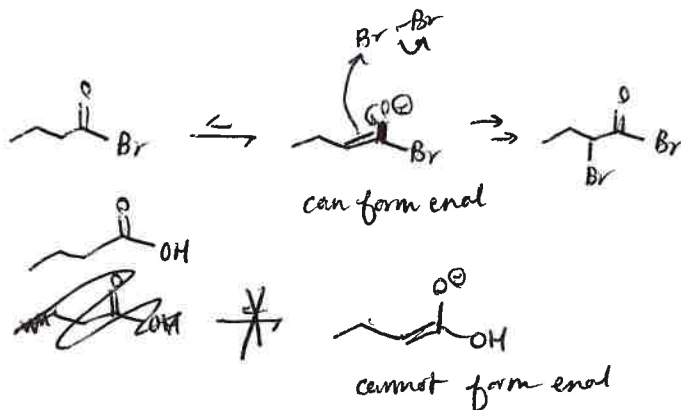 Br-Br
O O⊖ O
Br Br Br
Br
can form enol
O
OH
O⊖
OH
cannot form enol